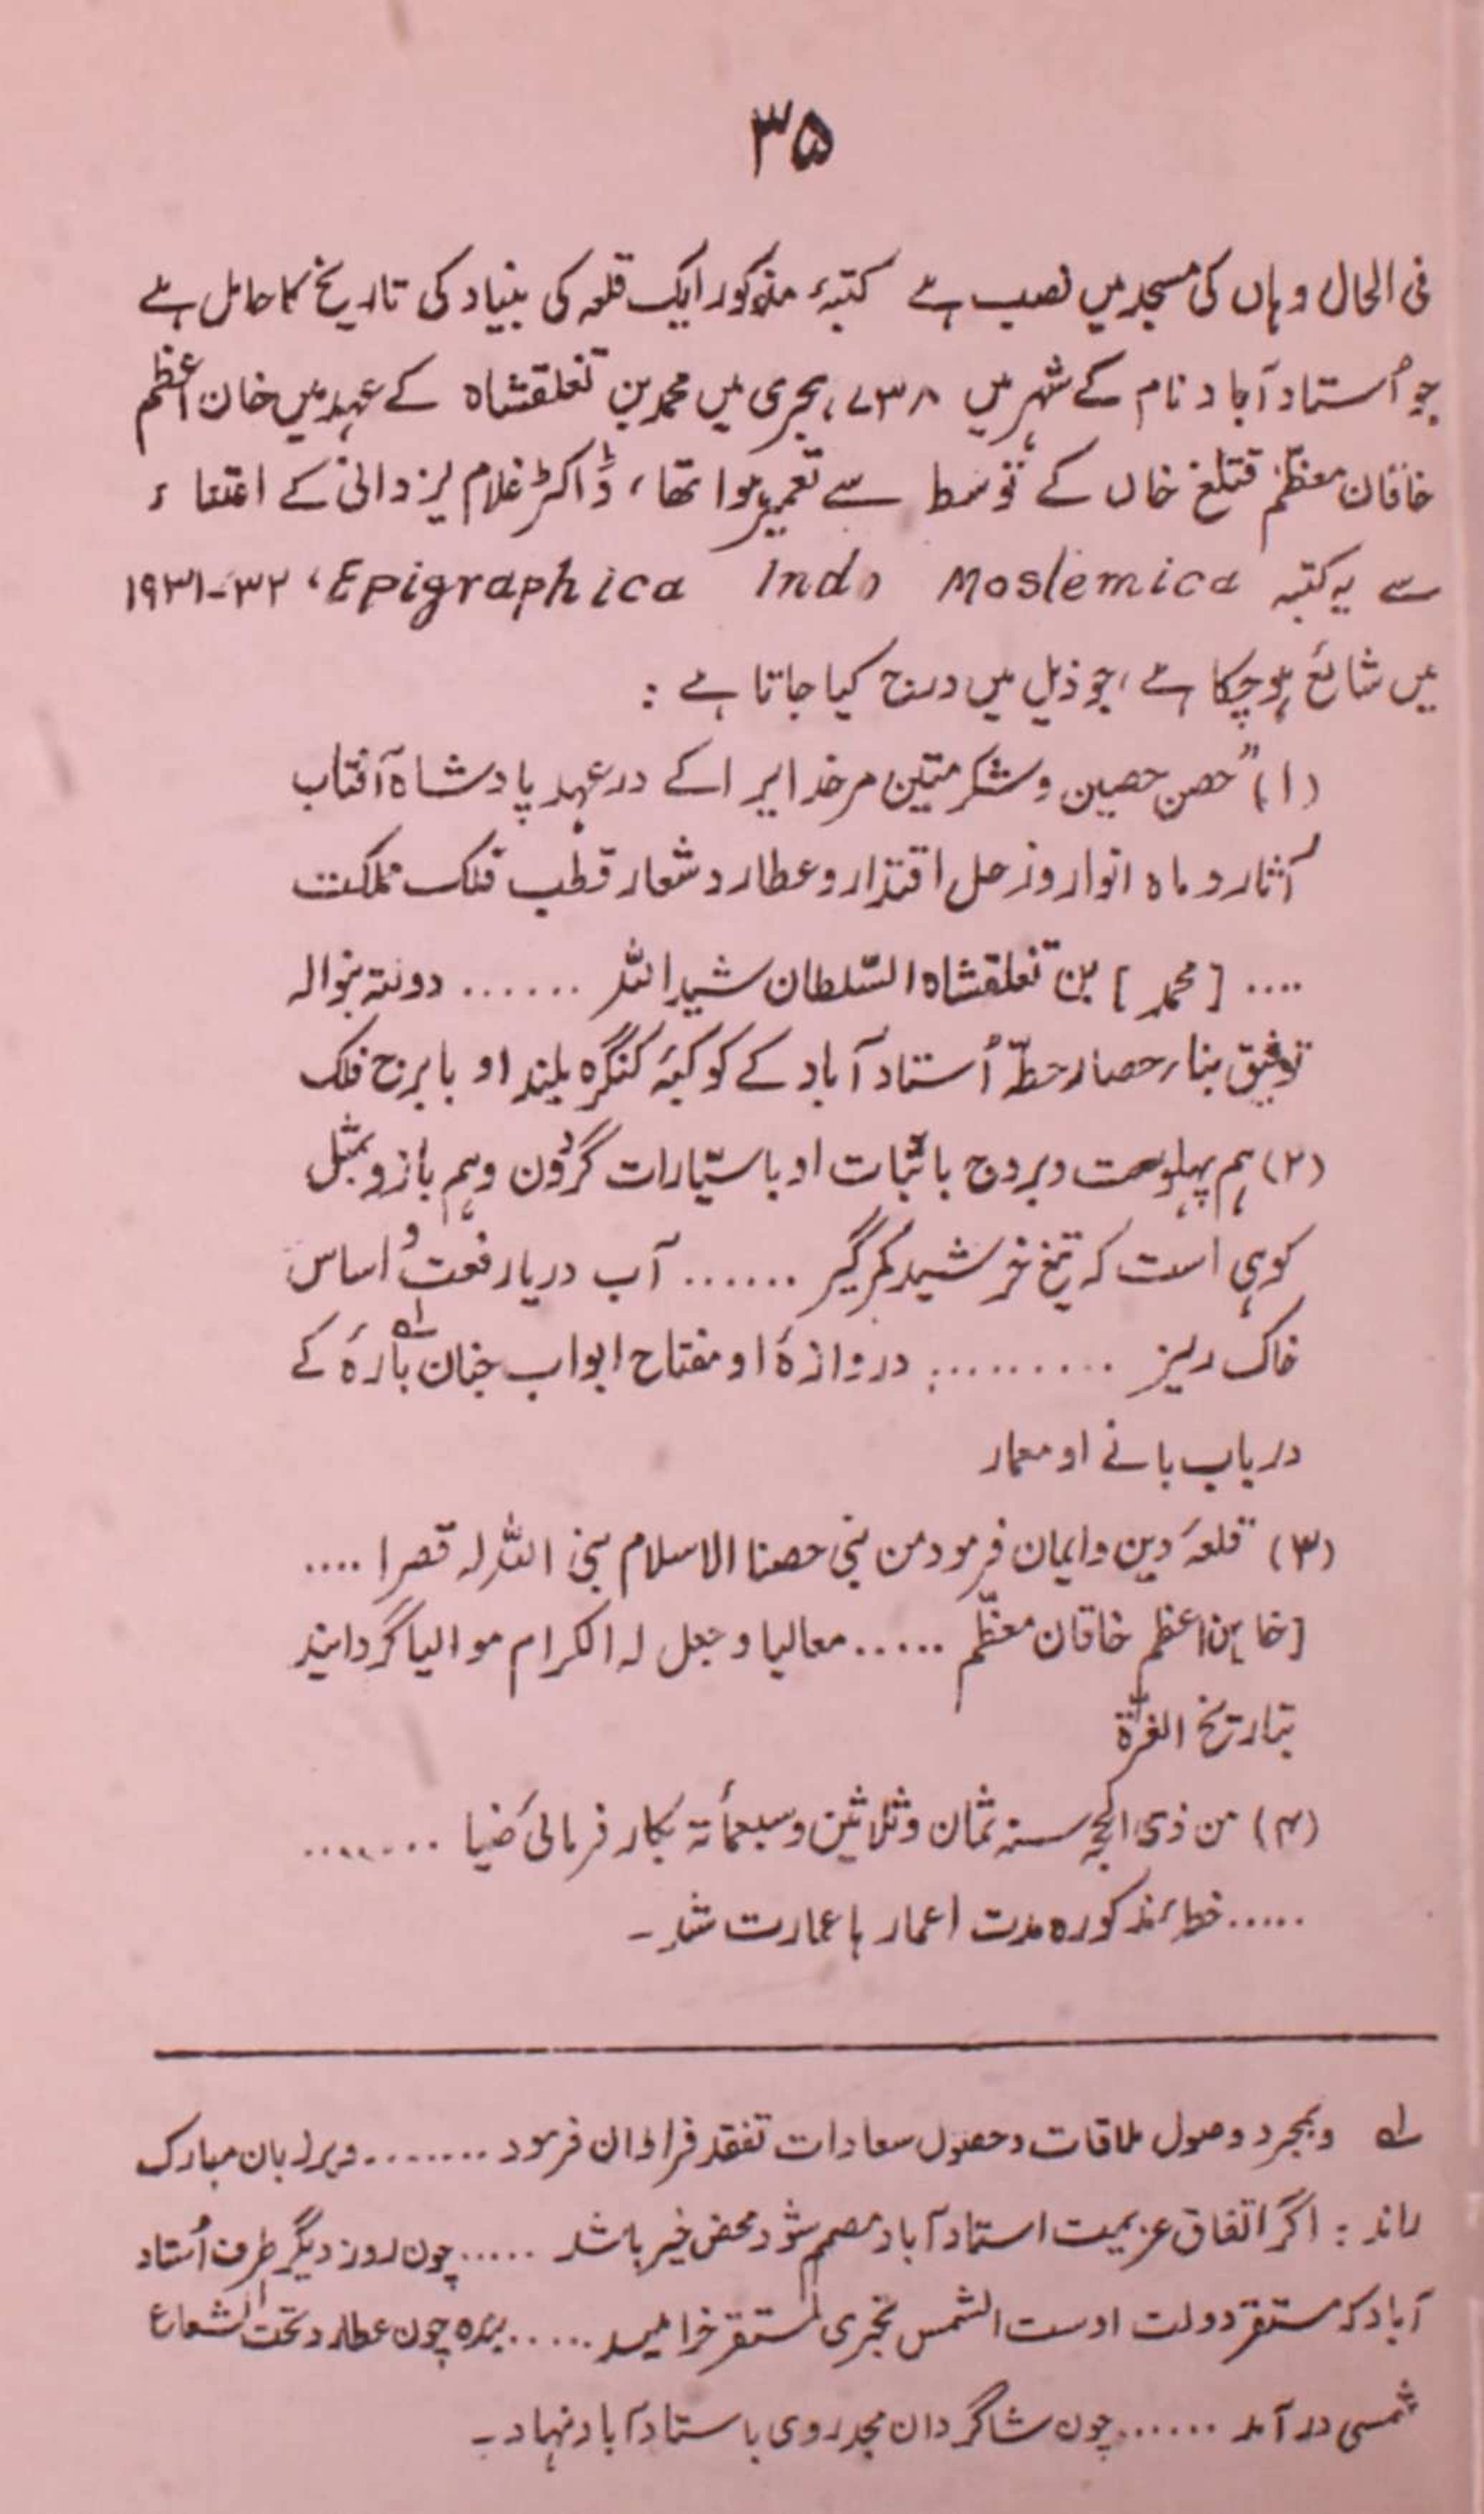 ۳۵
فی الحال وہاں کی مسجد میں نصب ہے کتبۂ مذکور ایک قلعہ کی بنیاد کی تاریخ کا حامل ہے
جو اُستاد آباد نام کے شہر میں ۷۳۸ ہجری میں محمد بن تغلقشاہ کے عہد میں خان اعظم
خاقان معظّم قتلغ خاں کے توسط سے تعمیر ہوا تھا، ڈاکٹر غلام یزدانی کے اعتناء
سے یہ کتبہ Epigraphica Indo Moslemica، ۱۹۳۱-۳۲
میں شائع ہو چکا ہے، جو ذیل میں درج کیا جاتا ہے :
(۱) "حصن حصین و شکر متین مر خدایرا کے در عہد پادشاہ آفتاب
آثار و ماہ انوار و زحل اقتدار و عطارد شعار قطب فلک مملکت
.... [محمد] بن تغلقشاہ السّلطان شید اللہ ...... دولتہ بنوالہ
توفیق بناء حصار خطّہ اُستاد آباد کے کوکبۂ کنگرہ بلند او با برج فلک
(۲) ہم پہلوست و بروج با ثبات او با سیّارات گردُون و ہم بازو بمثل
کوہی است کہ تیغ خرشید کمر گیر ...... آب دریا رفعت و اساس
خاک ریز .......... دروازۂ او مفتاح ابواب جنان بارۂ کے
در باب بانے او معمار
(۳) قلعۂ دین و ایمان فرمود من بنی حصنا الاسلام بنی اللہ لہ قصرا ....
[خا]ن اعظم خاقان معظّم ..... معالیا و جعل لہ الکرام موالیا گردانید
بتاریخ الغرّۃ
(۴) من ذی الحجہ سنہ ثمان و ثلاثین و سبعمأتہ بکار فرمائی ضیا ........
..... خطۂ مذکورہ مدت اعمارہا عمارت شد ۔
لہ و بمجرد وصول ملاقات و حصول سعادات تفقد فراوان فرمود ........ و بر زبان مبارک
راند : اگر اتفاق عزیمت استاد آباد مصمم شود محض خیر باشد ..... چون روز دیگر طرف اُستاد
آباد کہ مستقر دولت اوست الشمس تجری لمستقر خرامید ..... بندہ چون عطارد تحت الشعاع
شمسی در آمد ...... چون شاگردان مجد روی باستاد آباد نہاد ۔